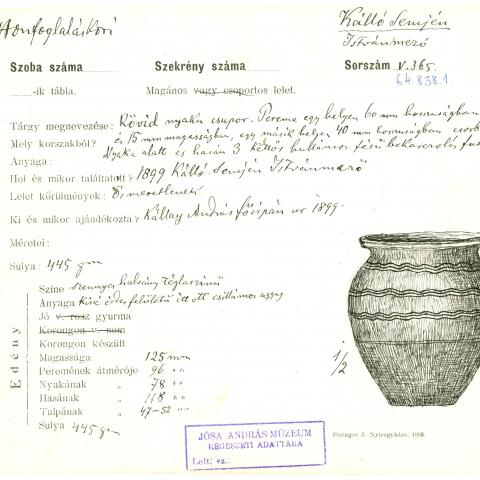 Honfoglaláskori
Kálló Semjén
Istvánmező
Szoba száma
Szekrény száma
Sorszám V.365.
64.838.1.
-ik tábla.
Magános vagy csoportos lelet.
Tárgy megnevezése: Rövid nyakú csupor. Pereme egy helyen 60 mm hosszúságban
Mely korszakból? és 15 mm magasságban, egy másik helyen 40 mm hosszúságban csorb
Anyaga: Nyaka alatt és hasán 3 kettős hullámos fésű bekarcolás fut
Hol és mikor találtatott? 1899 Kálló Semjén Istvánmező
Lelet körülmények: Ismeretlenek
Ki és mikor ajándékozta? Kállay András főispán úr 1899.
Méretei:
Sulya: 445 gm
Edény
Szine szennyes halvány téglaszínű
Anyaga kissé érdes felületű itt ott csillámos agyag
Jó v. rosz gyurma
Korongon v. nem
Korongon készült
Magassága 125 mm
Peremének átmérője 96 " "
Nyakának " 78 " "
Hasának " 118 " "
Talpának " 47-52 " "
Sulya 445 gm
1/2
JÓSA ANDRÁS-MÚZEUM
RÉGÉSZETI ADATTÁRA
Lelt. sz.:
Piringer J. Nyiregyháza, 1902.